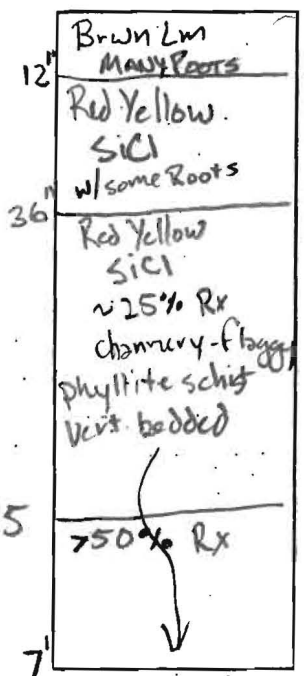 Brwn Lm
MANY ROOTS
12"
Red Yellow
SiCl
w/some Roots
36"
Red Yellow
SiCl
~25% Rx
channery-flaggy
phyllite schist
Vert. bedded
5
>50% Rx
7'